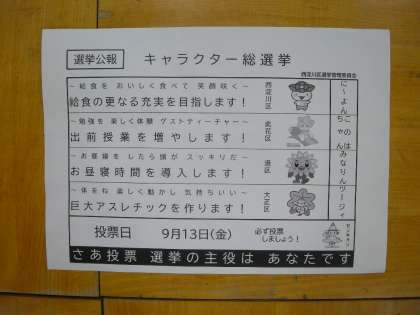 選挙公報 キャラクター総選挙
西淀川区選挙管理委員会
～給食を おいしく食べて 笑顔咲く～
給食の更なる充実を目指します！
西淀川区
に～よんちゃん
～勉強を 楽しく体験 ゲストティーチャー～
出前授業を増やします！
此花区
このはちゃん
～お昼寝を したら頭が スッキリだ～
お昼寝時間を導入します！
港区
みなりん
～体をね 楽しく動かし 気持ちいい～
巨大アスレチックを作ります！
大正区
ツージィ
投票日 9月13日(金) 必ず投票しましょう！
さあ投票 選挙の主役は あなたです